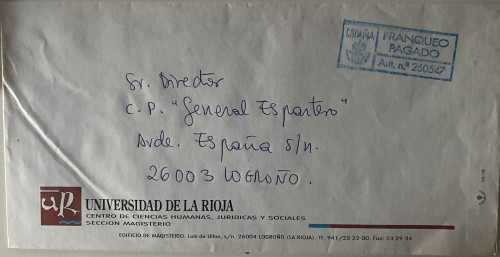 ESPAÑA
FRANQUEO
PAGADO
Aut. n.º 260547
Sr. Director
C.P. "General Espartero"
Avde. España s/n.
26003 LOGROÑO.
UR
UNIVERSIDAD DE LA RIOJA
CENTRO DE CIENCIAS HUMANAS, JURIDICAS Y SOCIALES
SECCION MAGISTERIO
EDIFICIO DE MAGISTERIO. Luis de Ulloa, s/n. 26004 LOGROÑO (LA RIOJA). Tf. 941/23 22 00. Fax: 23 29 34